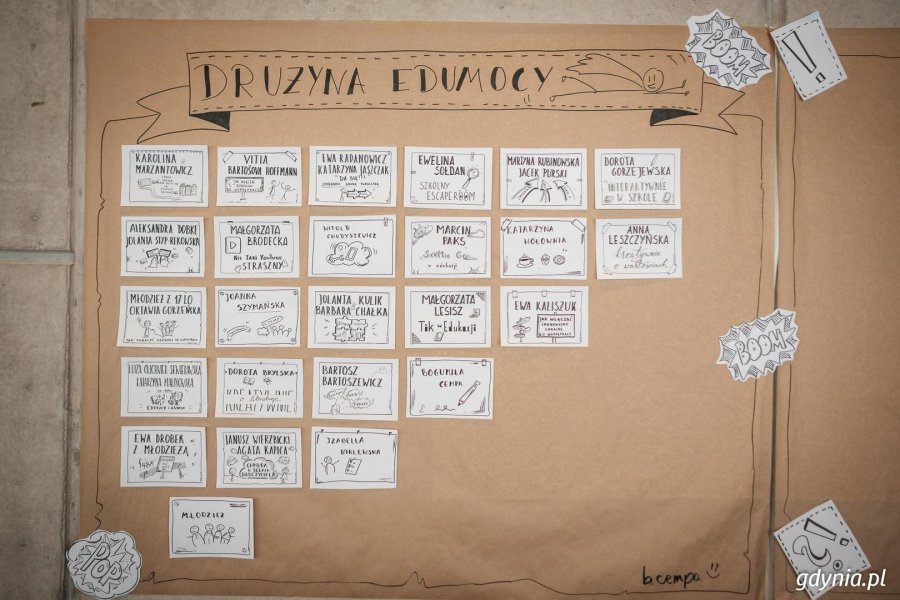 DRUŻYNA EDUMOCY
BOOM
!
KAROLINA
MARZANTOWICZ
VITIA
BARTOSOVA HOFFMANN
EWA RADANOWICZ
KATARZYNA JASZCZAK
DA SIĘ!
EWELINA
SOŁDAN
SZKOLNY
ESCAPEROOM
MARZYNA RUBINOWSKA
JACEK PURSKI
DOROTA
GORZEJEWSKA
INTERAKTYWNIE
W SZKOLE
ALEKSANDRA DOBKE
JOLANTA STYP-REKOWSKA
MAŁGORZATA
BRODECKA
NIE TAKI YOUTUBE
STRASZNY
WITOLD
CHUDYSZEWICZ
MARCIN
PAKS
w edukacji
KATARZYNA
HOŁOWNIA
ANNA
LESZCZYŃSKA
kreatywnie
o wartościach
MŁODZIEŻ Z 17 LO
OKTAWIA GORZEŃSKA
JOANNA
SZYMAŃSKA
JOLANTA KULIK
BARBARA CHAŁKA
MAŁGORZATA
LESISZ
Tik w Edukacji
EWA KALISZUK
JAK WŁĄCZAĆ
KATARZYNA MALINOWSKA
DOROTA BRYLSKA
o
BARTOSZ
BARTOSZEWICZ
BOGUMIŁA
CEMPA
BOOM
EWA DROBEK
Z MŁODZIEŻĄ
JANUSZ WIERZBICKI
AGATA KAPICA
CHMURA
W RĘKACH
NAUCZYCIELA
IZABELLA
NIKLEWSKA
MŁODZIEŻ
POP
b.cempa
?!
gdynia.pl